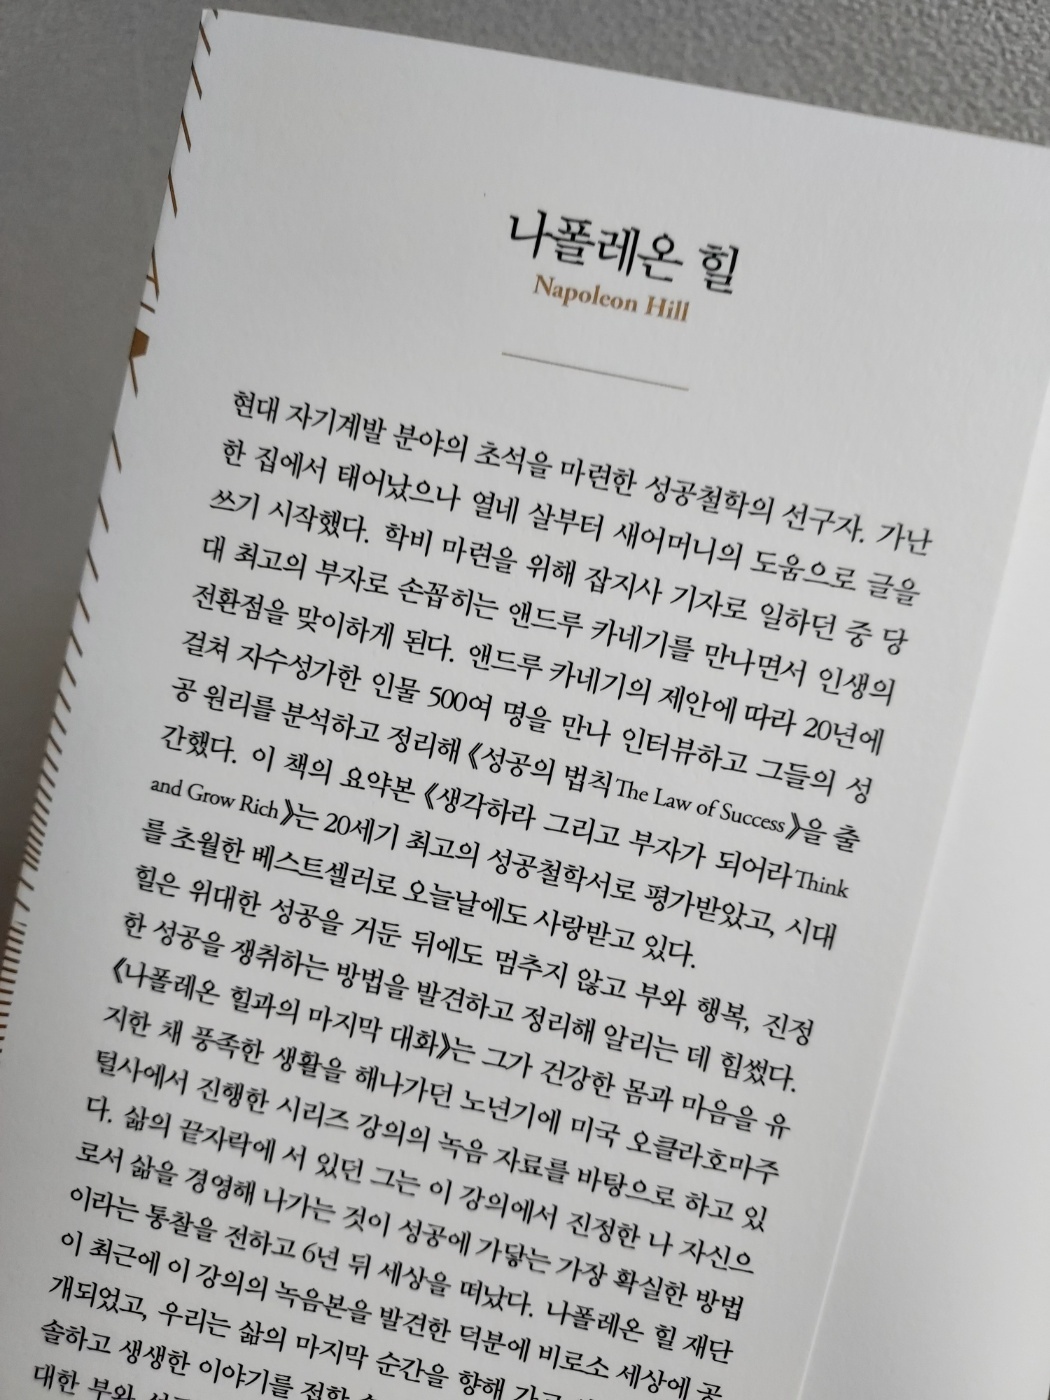 나폴레온 힐
Napoleon Hill
현대 자기계발 분야의 초석을 마련한 성공철학의 선구자. 가난
한 집에서 태어났으나 열네 살부터 새어머니의 도움으로 글을
쓰기 시작했다. 학비 마련을 위해 잡지사 기자로 일하던 중 당
대 최고의 부자로 손꼽히는 앤드루 카네기를 만나면서 인생의
전환점을 맞이하게 된다. 앤드루 카네기의 제안에 따라 20년에
걸쳐 자수성가한 인물 500여 명을 만나 인터뷰하고 그들의 성
공 원리를 분석하고 정리해 《성공의 법칙The Law of Success》을 출
간했다. 이 책의 요약본 《생각하라 그리고 부자가 되어라Think
and Grow Rich》는 20세기 최고의 성공철학서로 평가받았고, 시대
를 초월한 베스트셀러로 오늘날에도 사랑받고 있다.
힐은 위대한 성공을 거둔 뒤에도 멈추지 않고 부와 행복, 진정
한 성공을 쟁취하는 방법을 발견하고 정리해 알리는 데 힘썼다.
《나폴레온 힐과의 마지막 대화》는 그가 건강한 몸과 마음을 유
지한 채 풍족한 생활을 해나가던 노년기에 미국 오클라호마주
털사에서 진행한 시리즈 강의의 녹음 자료를 바탕으로 하고 있
다. 삶의 끝자락에 서 있던 그는 이 강의에서 진정한 나 자신으
로서 삶을 경영해 나가는 것이 성공에 가닿는 가장 확실한 방법
이라는 통찰을 전하고 6년 뒤 세상을 떠났다. 나폴레온 힐 재단
이 최근에 이 강의의 녹음본을 발견한 덕분에 비로소 세상에 공
개되었고, 우리는 삶의 마지막 순간을 향해
솔하고 생생한 이야기를 접할
대한 부와